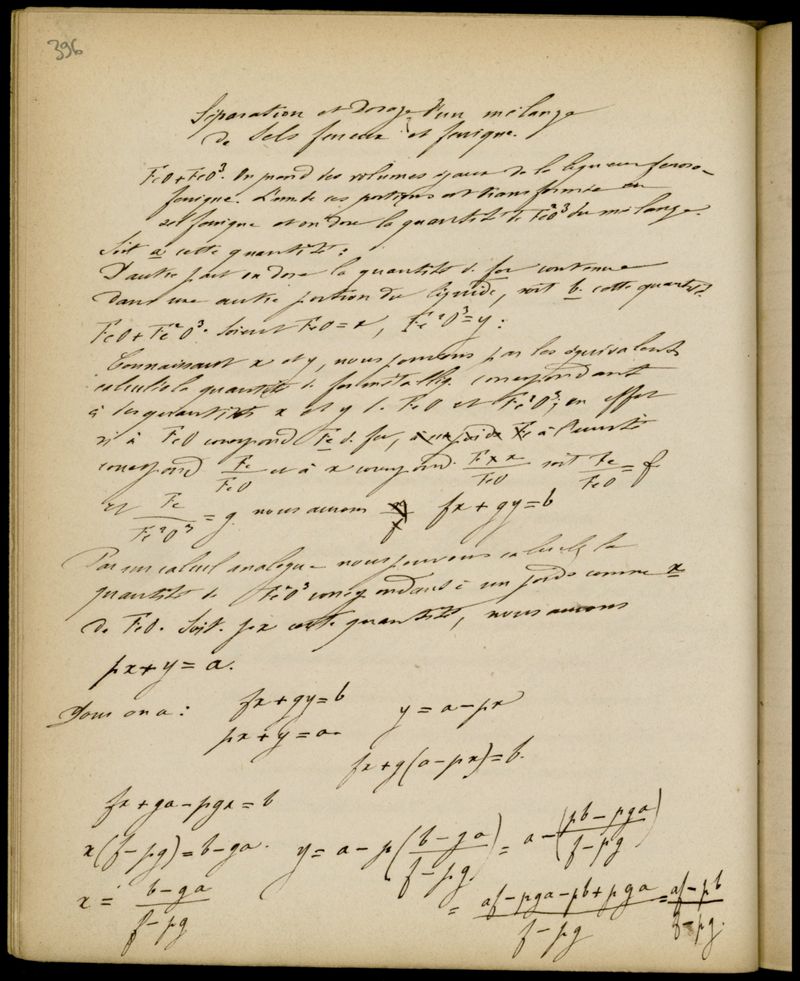 396
Séparation et dosage d'un mélange
de Sels ferreux et ferrique.
FeO + FeO³. On prend des volumes égaux de la liqueur ferroso-
ferrique. L'une de ces portions est transformée en
sel ferrique et on dose la quantité de Fe²O³ du mélange.
Soit a cette quantité :
D'autre part on dose la quantité de fer contenue
dans une autre portion du liquide, soit b cette quantité.
FeO + Fe²O³. Soient FeO = x, Fe²O³ = y :
Connaissant x et y, nous pouvons par les équivalents
calculer la quantité de fer métalliq. correspondante
à des quantités x et y de FeO et Fe²O³; en effet
si à FeO correspond Fe de fer, à l'unité
correspond Fe/FeO et à x correspond Fe × x/FeO soit Fe/FeO = f
et Fe/Fe²O³ = g nous aurons fx + gy = b
Par un calcul analogue nous pouvons calculer la
quantité de Fe²O³ correspondant à un poids comme x
de FeO. Soit px cette quantité, nous aurons
px + y = a.
Donc on a : fx + gy = b
px + y = a. y = a - px
fx + g(a - px) = b.
fx + ga - pgx = b
x(f - pg) = b - ga. y = a - p((b - ga)/(f - pg)) = a - ((pb - pga)/(f - pg))
x = (b - ga)/(f - pg) = (af - pga - pb + pga)/(f - pg) = (af - pb)/(f - pg).